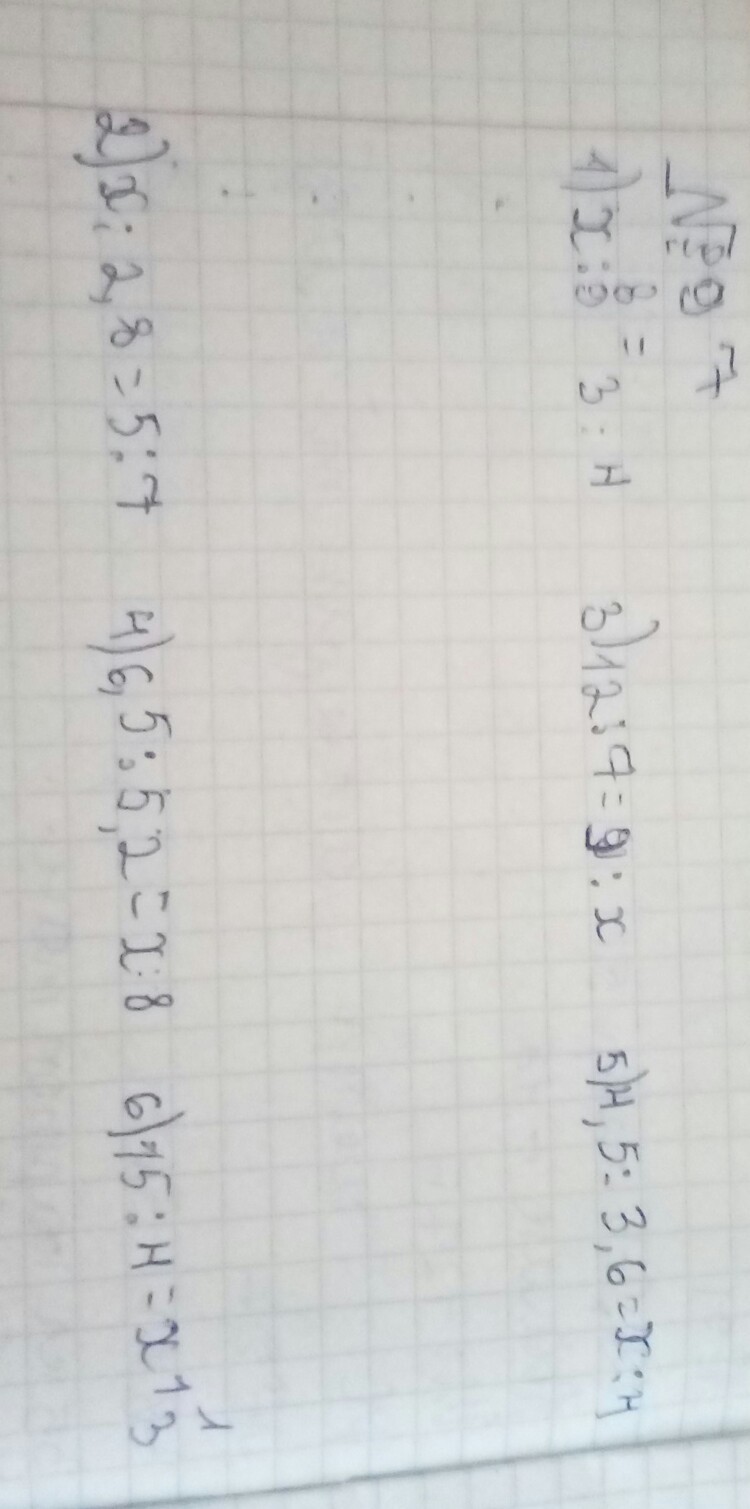 № 9 7
1) x : 8 = 3 : 4 3) 12 : 7 = 9 : x 5) 4,5 : 3,6 = x : 4
2) x : 2,8 = 5 : 7 4) 6,5 : 5,2 = x : 8 6) 15 : 4 = x 1 1/3